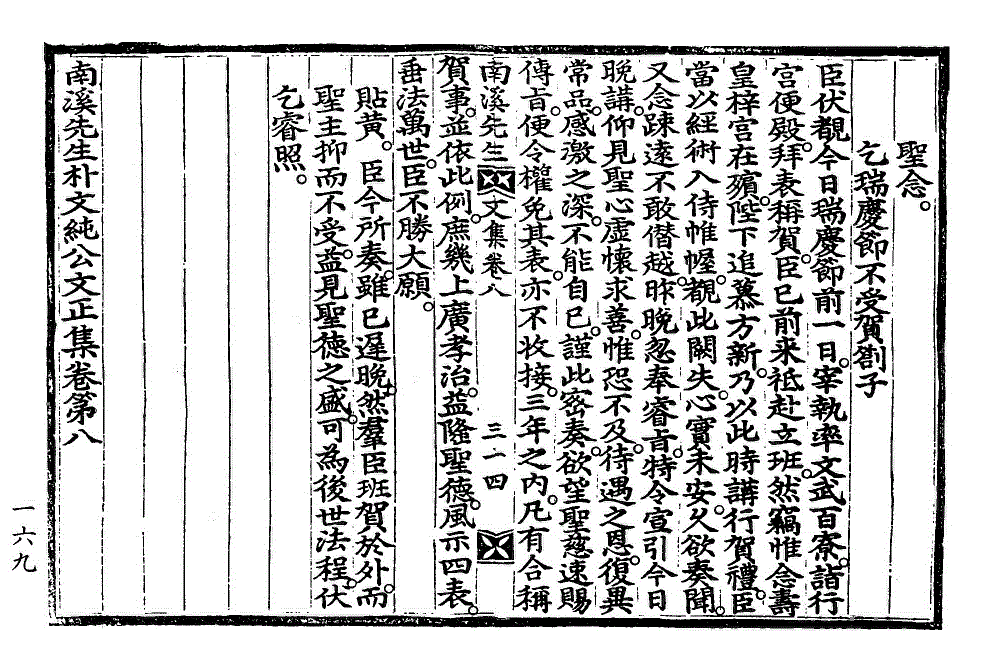 聖念。
乞瑞慶節不受賀劄子
臣伏覩今日瑞慶節前一日。宰執率文武百寮。詣行
宮便殿。拜表稱賀。臣已前来祗赴立班。然竊惟念壽
皇梓宮在殯。陛下追慕方新。乃以此時講行賀禮。臣
當以經術入侍帷幄。覩此闕失。心實未安。久欲奏聞。
又念踈遠不敢僣越。昨晚忽奉睿旨。特令宣引今日
晚講。仰見聖心虛懷求善。惟恐不及。待遇之恩。復異
常品。感激之深。不能自已。謹此密奏。欲望聖慈速賜
傳旨。便令權免其表。亦不收接。三年之內。凡有合稱
南溪先生文集卷八 三一四
賀事。並依此例。庶幾上廣孝治。益隆聖德。風示四表。
垂法萬世。臣不勝大願。
貼黃。臣今所奏。雖已遲晚。然羣臣班賀於外。而
聖主抑而不受。益見聖德之盛。可為後世法程。伏
乞睿照。
南溪先生朴文純公文正集卷第八
一六九